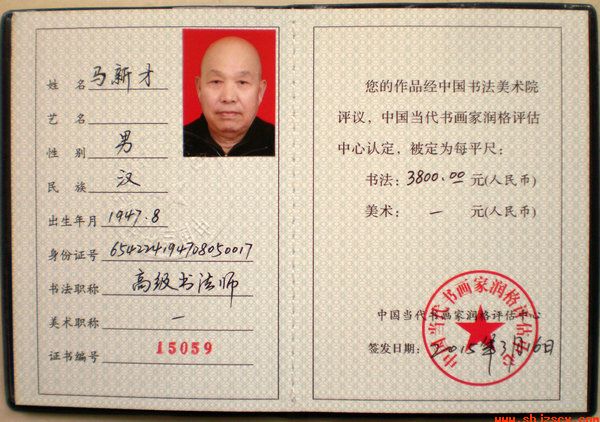 姓 名 马新才
艺 名
性 别 男
民 族 汉
出生年月 1947.8
身份证号 654224194708050017
书法职称 高级书法师
美术职称 一
证书编号 15059
您的作品经中国书法美术院
评议，中国当代书画家润格评估
中心认定，被定为每平尺：
书法：3800.00 元(人民币)
美术： 一 元(人民币)
中国当代书画家润格评估中心
签发日期：2015年3月16日
中国当代书画家润格评估中心
www.shjzscx.com